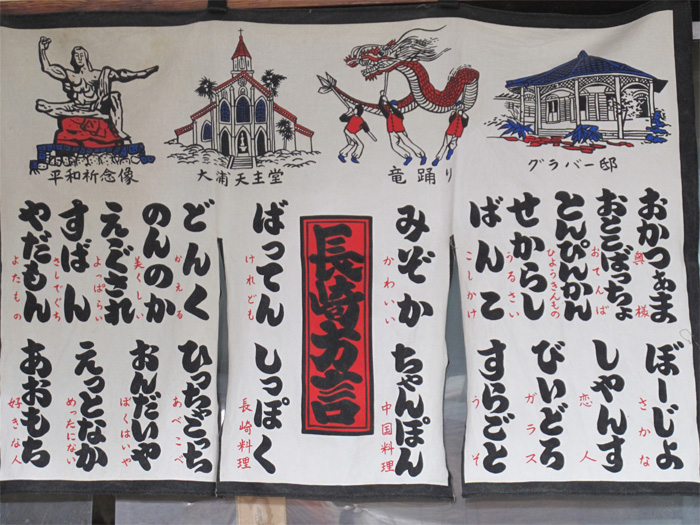 平和祈念像
大浦天主堂
竜踊り
グラバー邸
おかつぁま
奥様
おとこぼっちょ
おてんば
とんぴんかん
ひょうきんもの
せからし
うるさい
ばんこ
こしかけ
ぼーじょ
さかな
しゃんす
恋人
びいどろ
ガラス
すらごと
うそ
みぞか
かわいい
ちゃんぽん
中国料理
長崎方言
ばってん
けれども
しっぽく
長崎料理
どんく
かえる
のんのか
美くしい
えぐされ
よっぱらい
すばん
さしでぐち
やだもん
よたもの
ひっちゃこっち
あべこべ
おんだいや
ぼくはいや
えっとなか
めったにない
あおもち
好きな人